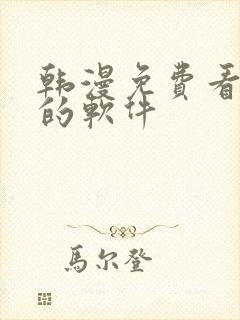 韩漫免费看
的軟件
馬尔登